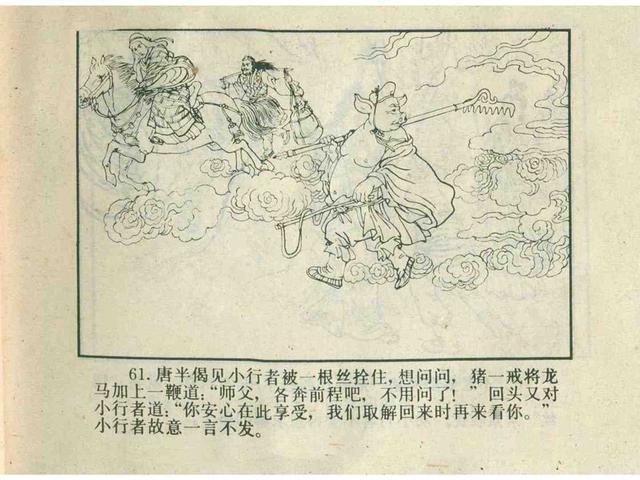 61.唐半偈见小行者被一根丝拴住,想问问,猪一戒将龙
马加上一鞭道:“师父,各奔前程吧,不用问了!”回头又对
小行者道:“你安心在此享受,我们取解回来时再来看你。”
小行者故意一言不发。